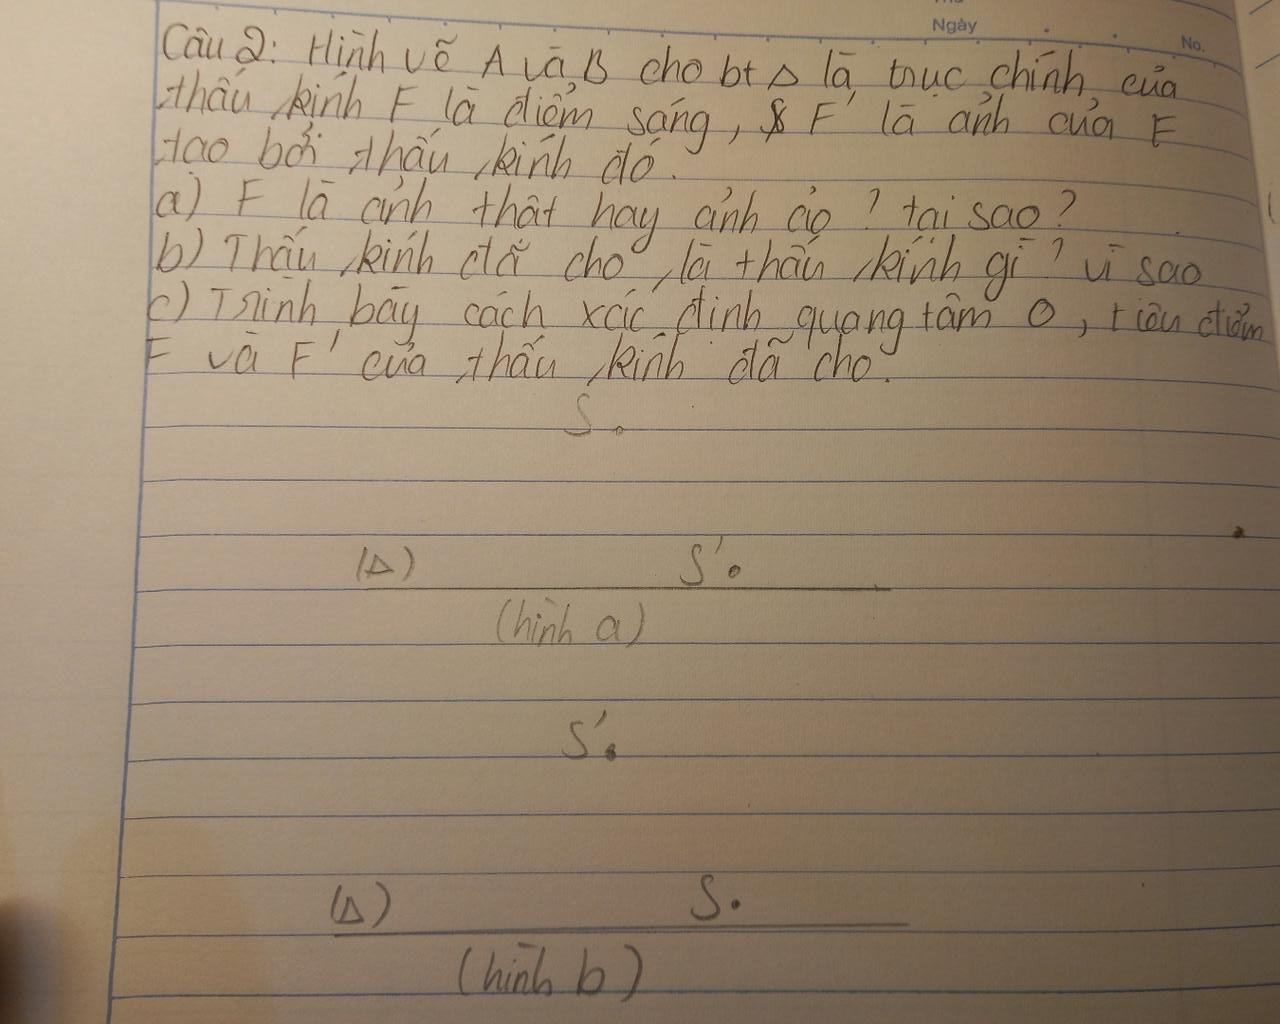 Ngày
No.
Câu 2: Hình vẽ A và B cho bt Δ là trục chính của
thấu kính F là điểm sáng, F' là ảnh của F
tạo bởi thấu kính đó.
a) F là ảnh thật hay ảnh ảo ? tại sao?
b) Thấu kính đã cho là thấu kính gì ? vì sao
c) Trình bày cách xác định quang tâm O, tiêu điểm
F và F' của thấu kính đã cho.
S.
(Δ) S'.
(hình a)
S'.
(Δ) S.
(hình b)